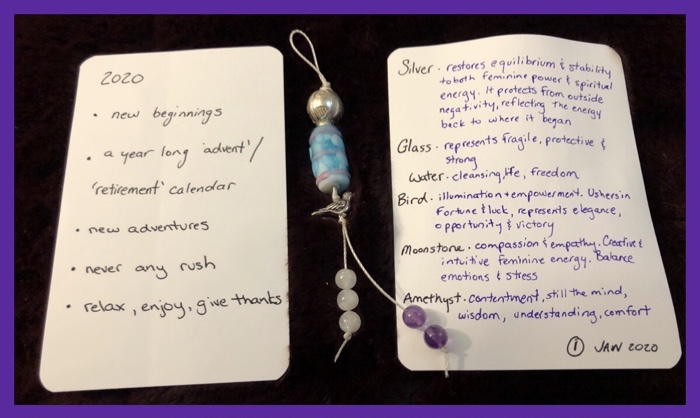 2020
• new beginnings
• a year long 'advent'/
'retirement' calendar
• new adventures
• never any rush
• relax, enjoy, give thanks
Silver - restores equilibrium & stability
to both feminine power & spiritual
energy. It protects from outside
negativity, reflecting the energy
back to where it began
Glass - represents fragile, protective &
strong
Water - cleansing, life, freedom
Bird - illumination + empowerment. Ushers in
fortune & luck, represents elegance,
opportunity & victory
Moonstone - compassion & empathy. Creative &
intuitive feminine energy. Balance
emotions & stress
Amethyst - contentment, still the mind,
wisdom, understanding, comfort
① JAN 2020